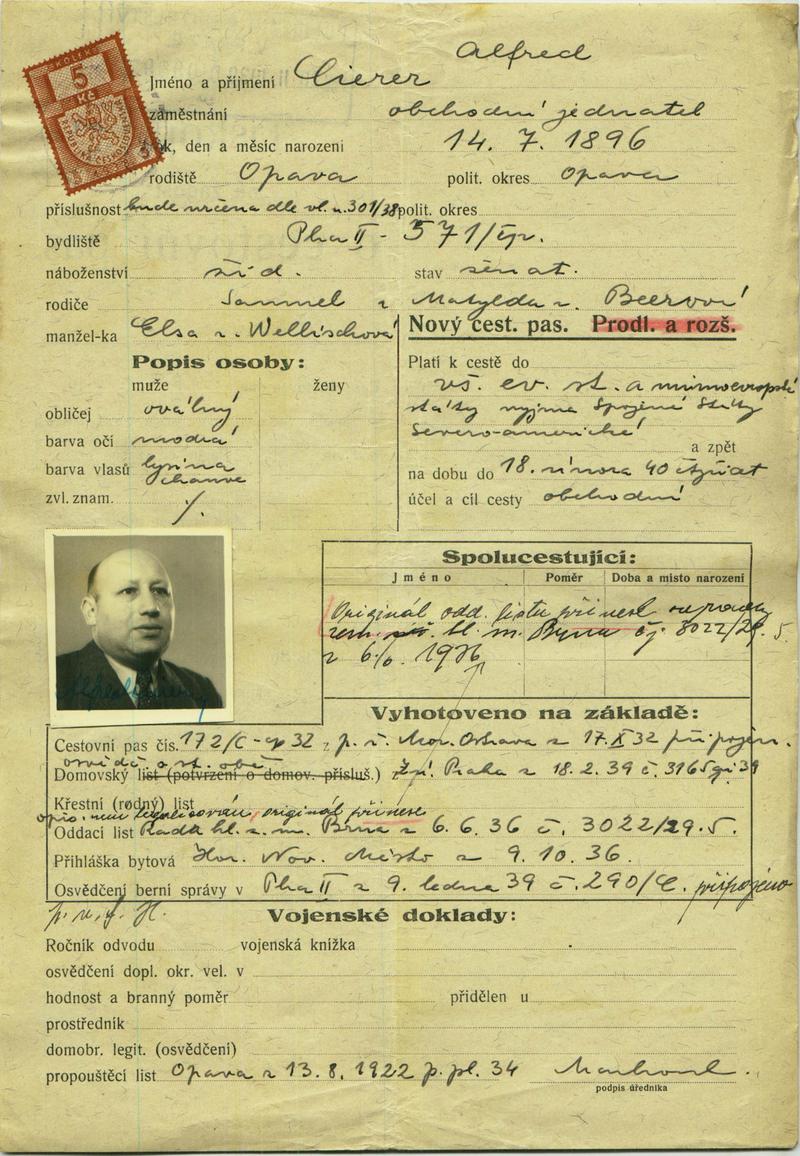 KOLKOVÁ
5
Kč
Alfred
Jméno a příjmení Cierer
zaměstnání obchodní jednatel
k, den a měsíc narození 14. 7. 1896
rodiště Opava polit. okres Opava
příslušnost bude určena dle vl. n. 301/38 polit. okres
bydliště Pha II - 571/čp.
náboženství žid. stav ženat.
rodiče Samuel z Matylda r. Beerová
manžel-ka Elsa r. Wellischová
Nový cest. pas. Prodl. a rozš.
Popis osoby:
muže ženy
obličej oválný
barva očí modrá
barva vlasů lysina
zvl. znam. /.
Platí k cestě do
vš. ev. st. a mimoevropské
státy vyjma Spojené Státy
Severo-americké
a zpět
na dobu do 18. února 40
účel a cíl cesty obchodní
Spolucestující:
Jméno Poměr Doba a místo narození
Originál odd. listu přinesl
hl. m. Brna čj 3022/29. 5.
z 6/6. 1936
Vyhotoveno na základě:
Cestovní pas čís. 172/C-op 32 z p. ř. Mor. Ostrava z 17. X 32 připojen.
osvědč. o st. obč.
Domovský list (potvrzení o domov. přísluš.) Praha z 18. 2. 39 č. 3165 39
Křestní (rodný) list
opis. není legalisován, originál přinese
Oddací list Rada hl. z. m. Brna z 6. 6. 36 č. 3022/29. 5.
Přihláška bytová Nov. Město z 9. 10. 36.
Osvědčení berní správy v Pha II z 9. ledna 39 č. 290/C. připojeno
Vojenské doklady:
Ročník odvodu vojenská knížka
osvědčení dopl. okr. vel. v
hodnost a branný poměr přidělen u
prostředník
domobr. legit. (osvědčení)
propouštěcí list Opava z 13. 8. 1922 p. pl. 34
podpis úředníka